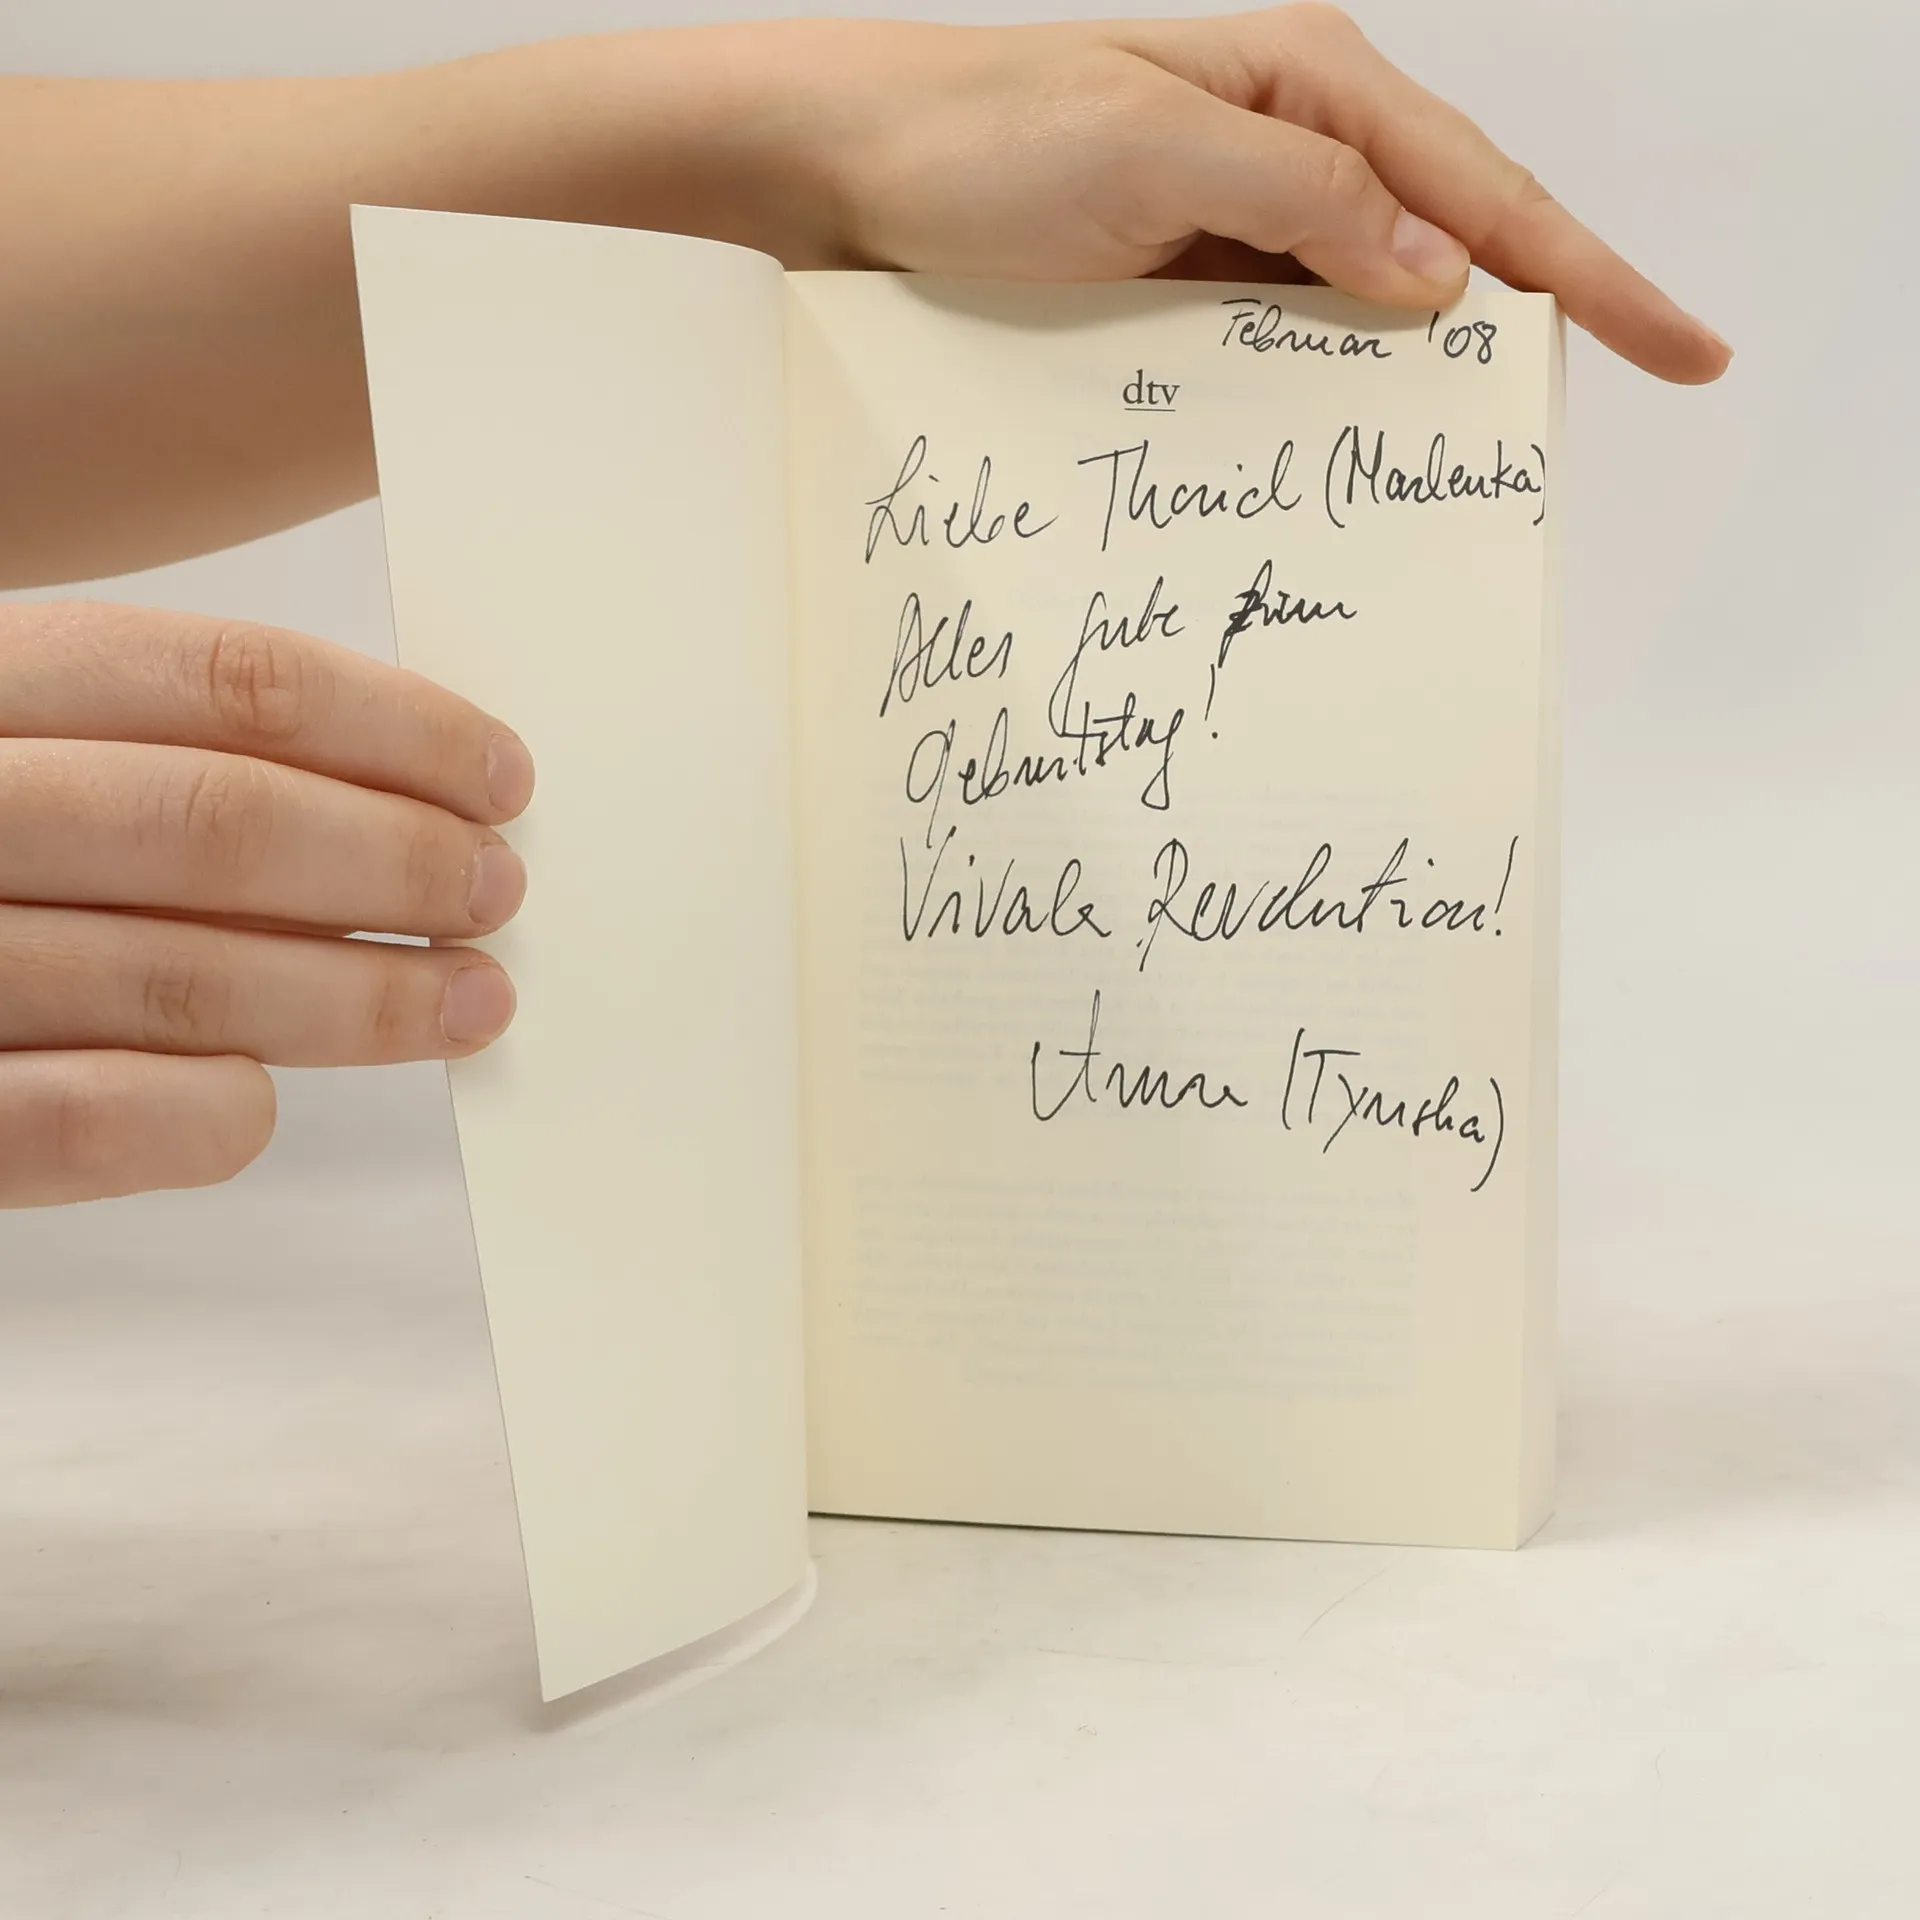 Februar '08
dtv
Liebe Thorid (Marlenka)
Alles gute zum
Geburtstag!
Viva la Revolution!
(Tyusha)